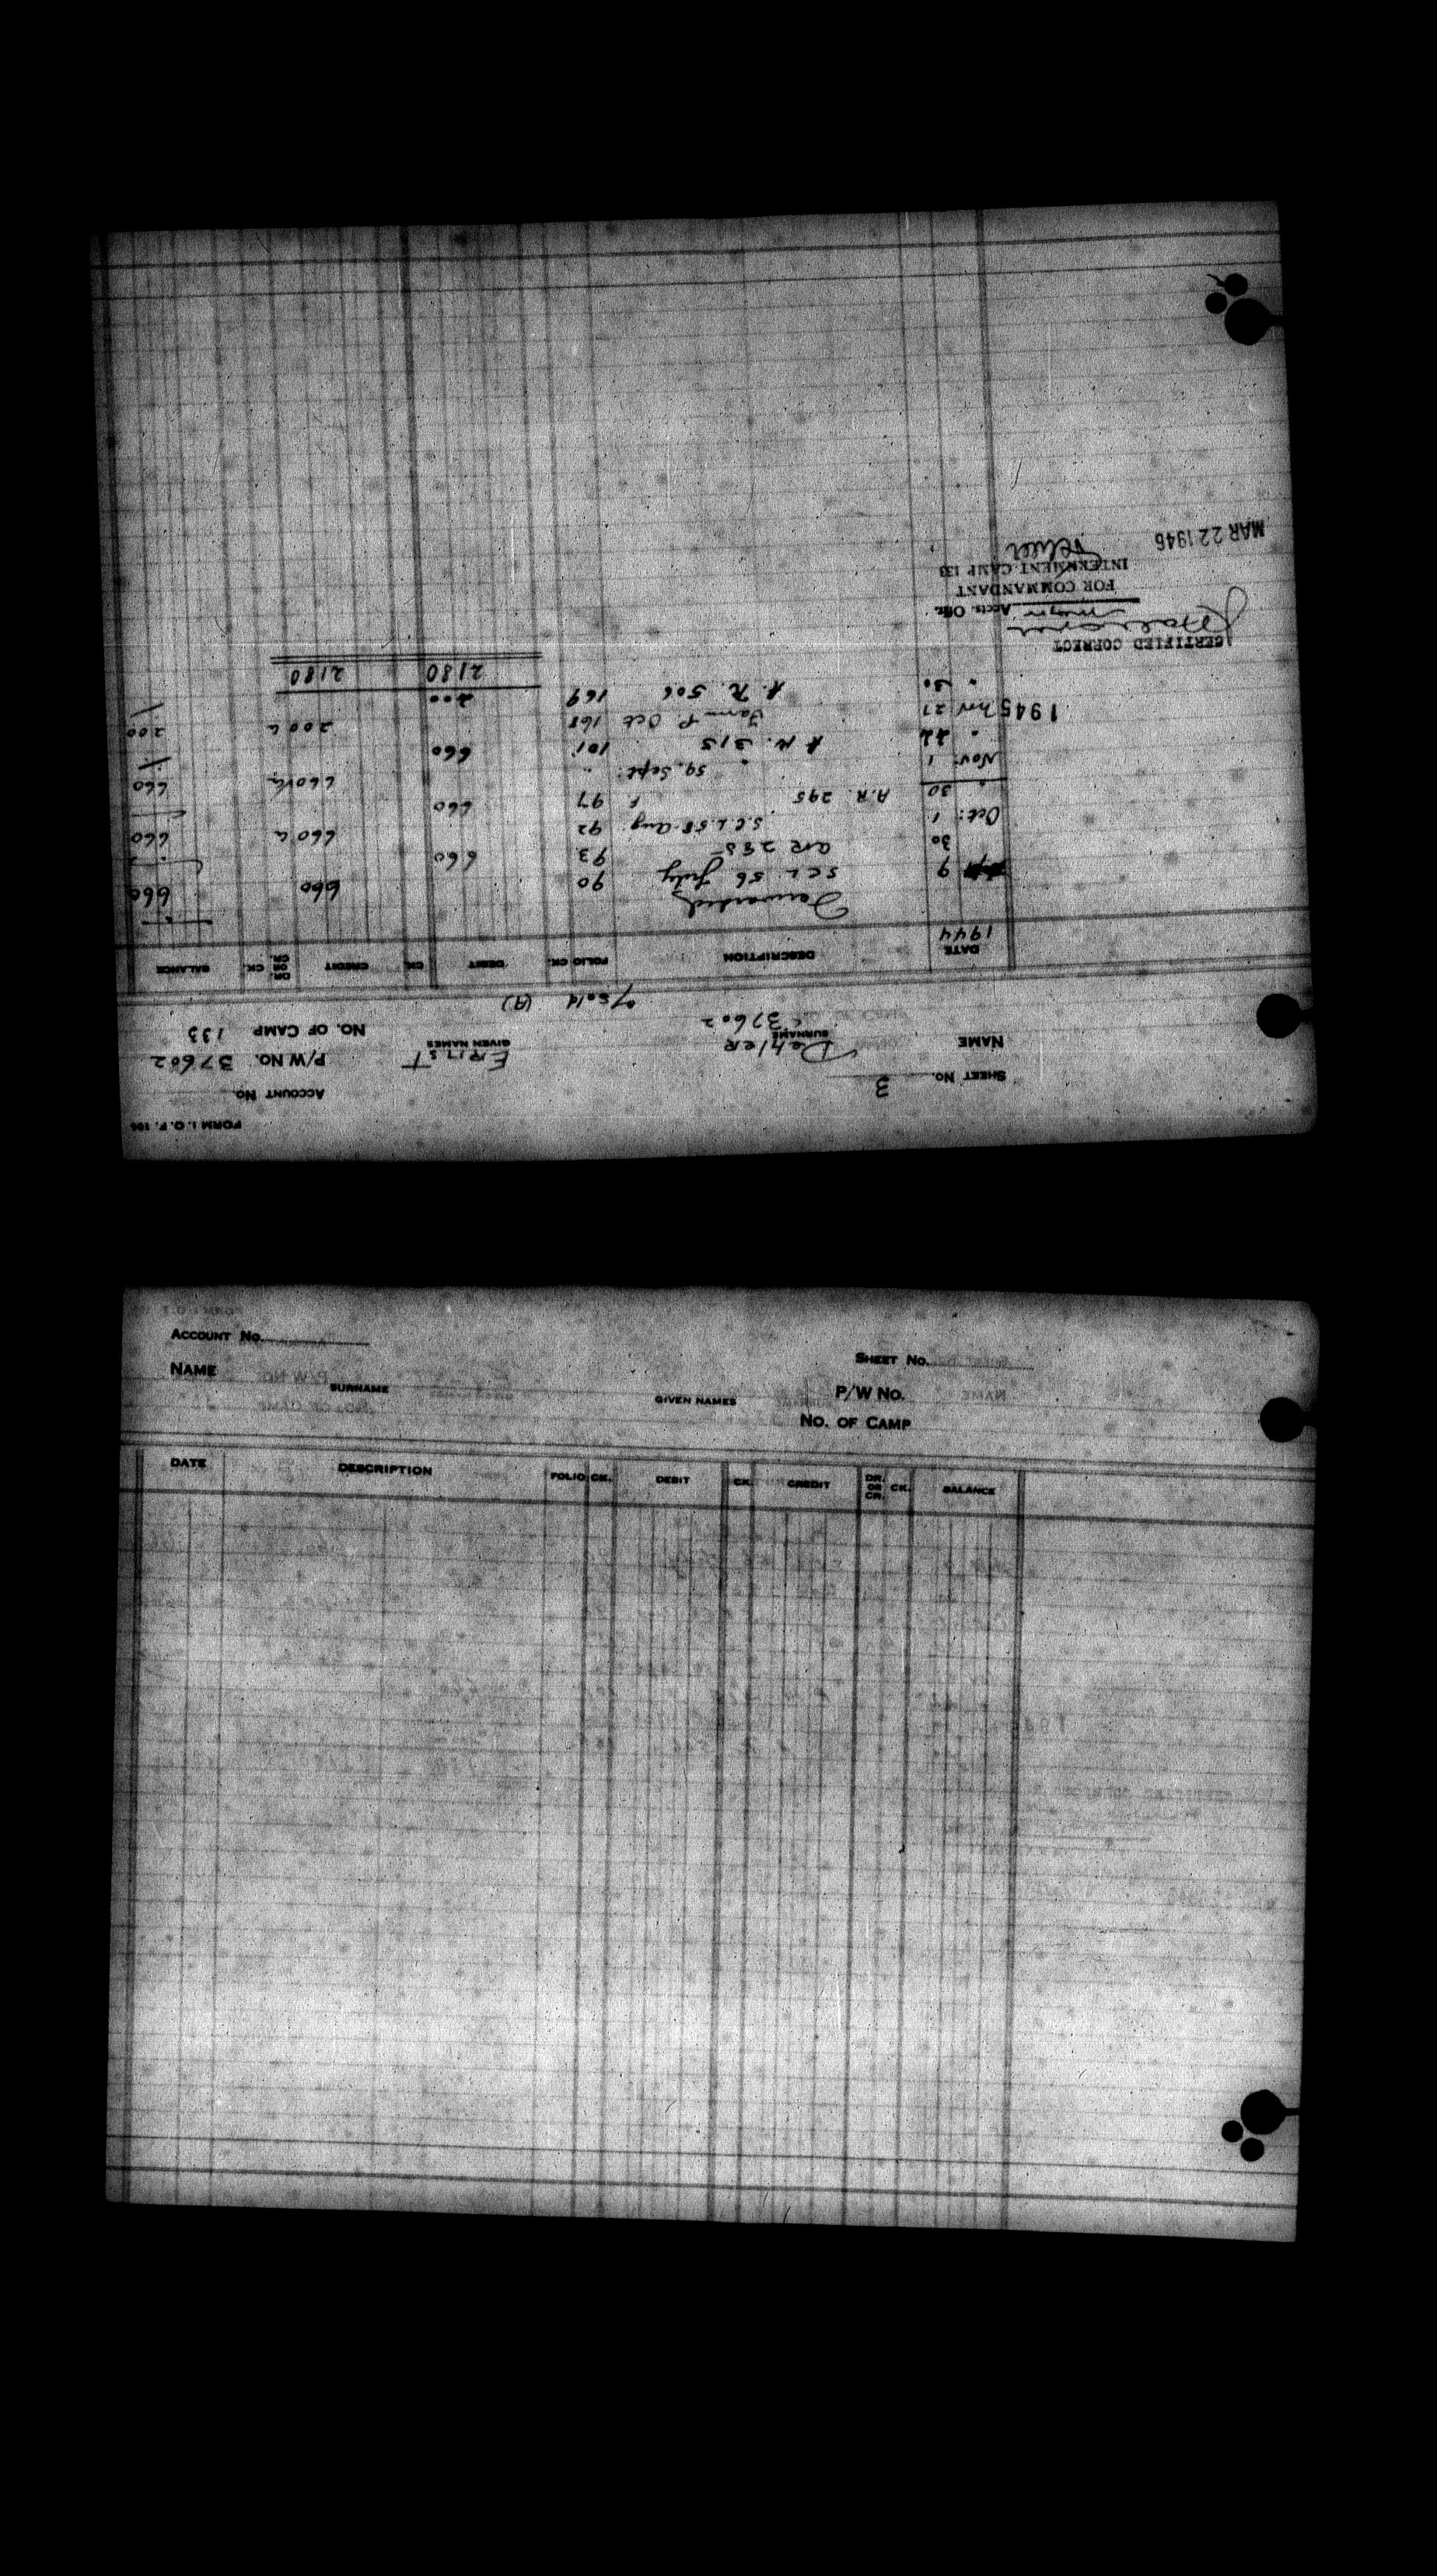 FORM I.O.F. 106
SHEET No. 3 ACCOUNT No.
NAME Dehler ERNST P/W NO. 37602
SURNAME GIVEN NAMES
37602 NO. OF CAMP 133
O/Sold (A)
DATE DESCRIPTION FOLIO CK. DEBIT CK. CREDIT DR. OR CR. CK. BALANCE
1944
Forwarded
9 S.C.L. 56 July 90 660 660
30 AR 285 93 660
Oct: 1 S.C.L. 58 Aug. 92 660 660
" 30 A.R. 295 97 660
Nov. 1 " 59. Sept. " 660 660
" 22 A.R. 315 101 660
1945 27 Farm P. Oct 168 200 200
" 30 A.R. 506 169 200
2180 2180
CERTIFIED CORRECT
Major Accts. Offr.
FOR COMMANDANT
INTERNMENT CAMP 133
MAR 22 1946
ACCOUNT No. SHEET No.
NAME P/W No.
SURNAME GIVEN NAMES
No. OF CAMP
DATE DESCRIPTION FOLIO CK. DEBIT CK. CREDIT DR. OR CR. CK. BALANCE